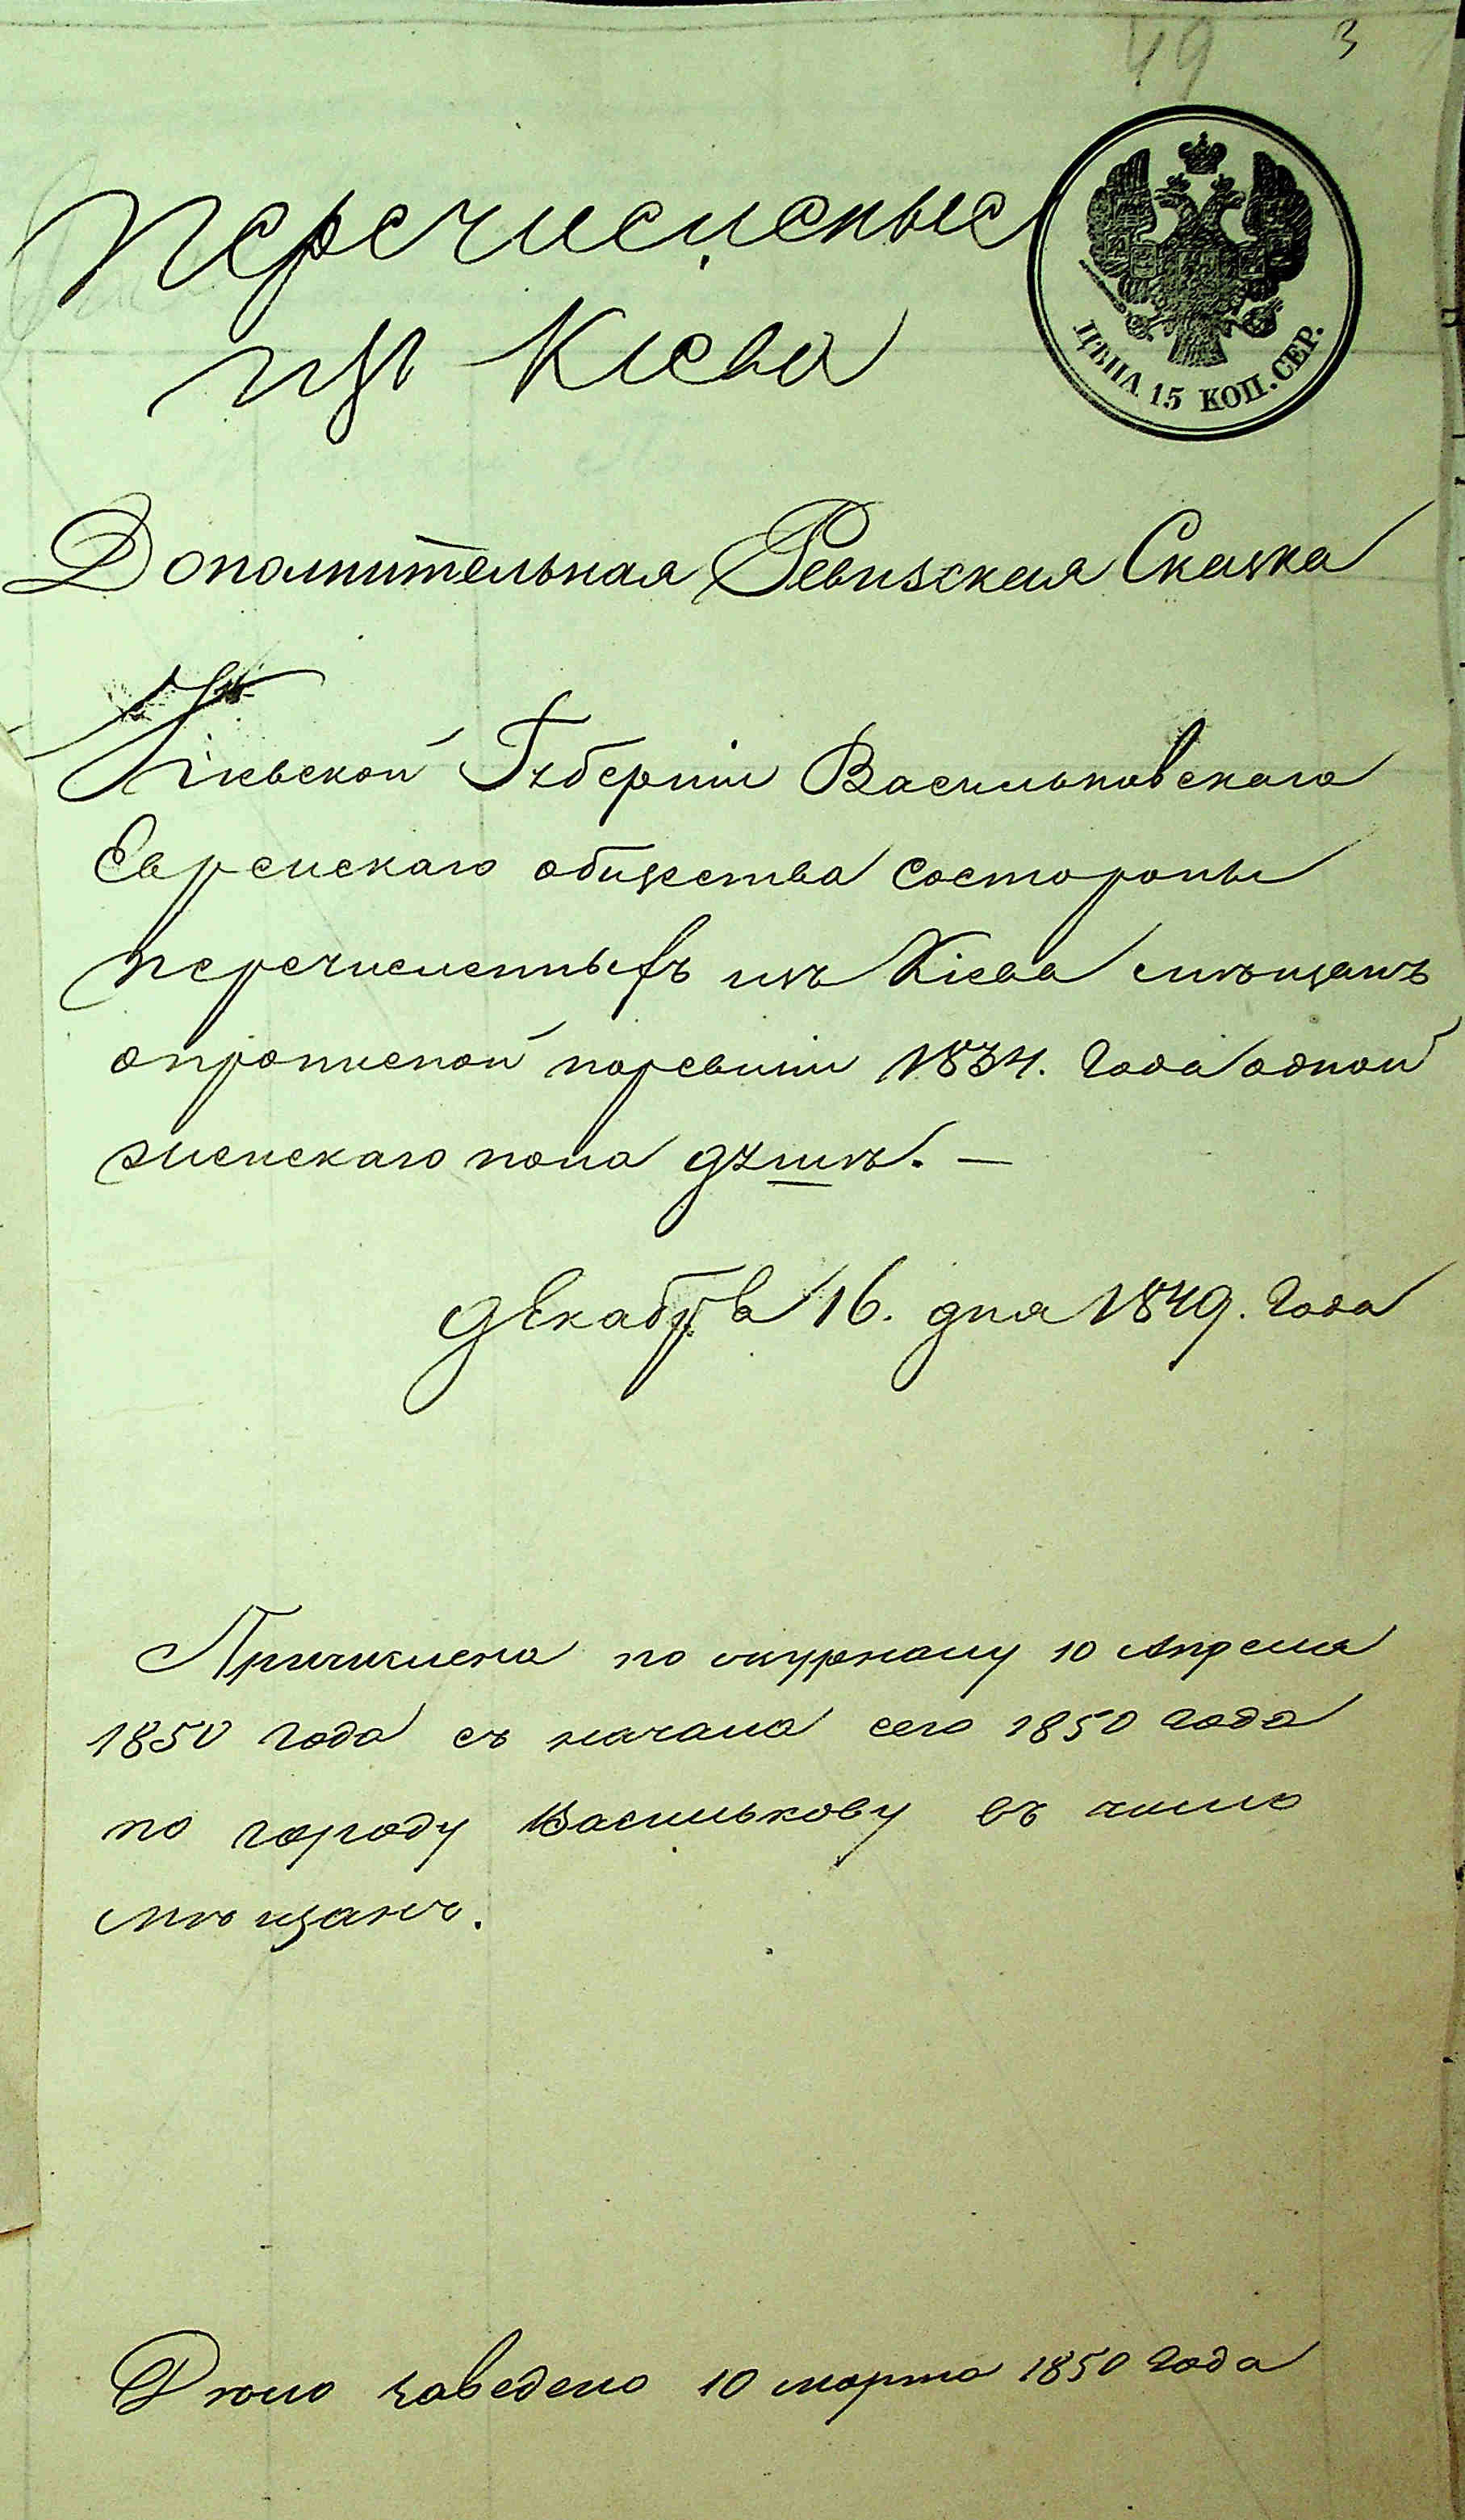 49 3
Перечисленые
изъ Кіева
ЦѢНА 15 КОП. СЕР.
Дополнительная Ревизская Сказка
Кіевской Губерніи Васильковскаго
Еврейскаго общества состороны
перечисленныхъ изъ Кіева мѣщанъ
опрописной поревизіи 1834. Года одной
женскаго пола душѣ. —
Декабря 16. дня 1849. Года
Причислена по окружному 10 Апреля
1850 года съ начала сего 1850 года
по городу Василькову въ число
мѣщанъ.
Дѣло заведено 10 марта 1850 года